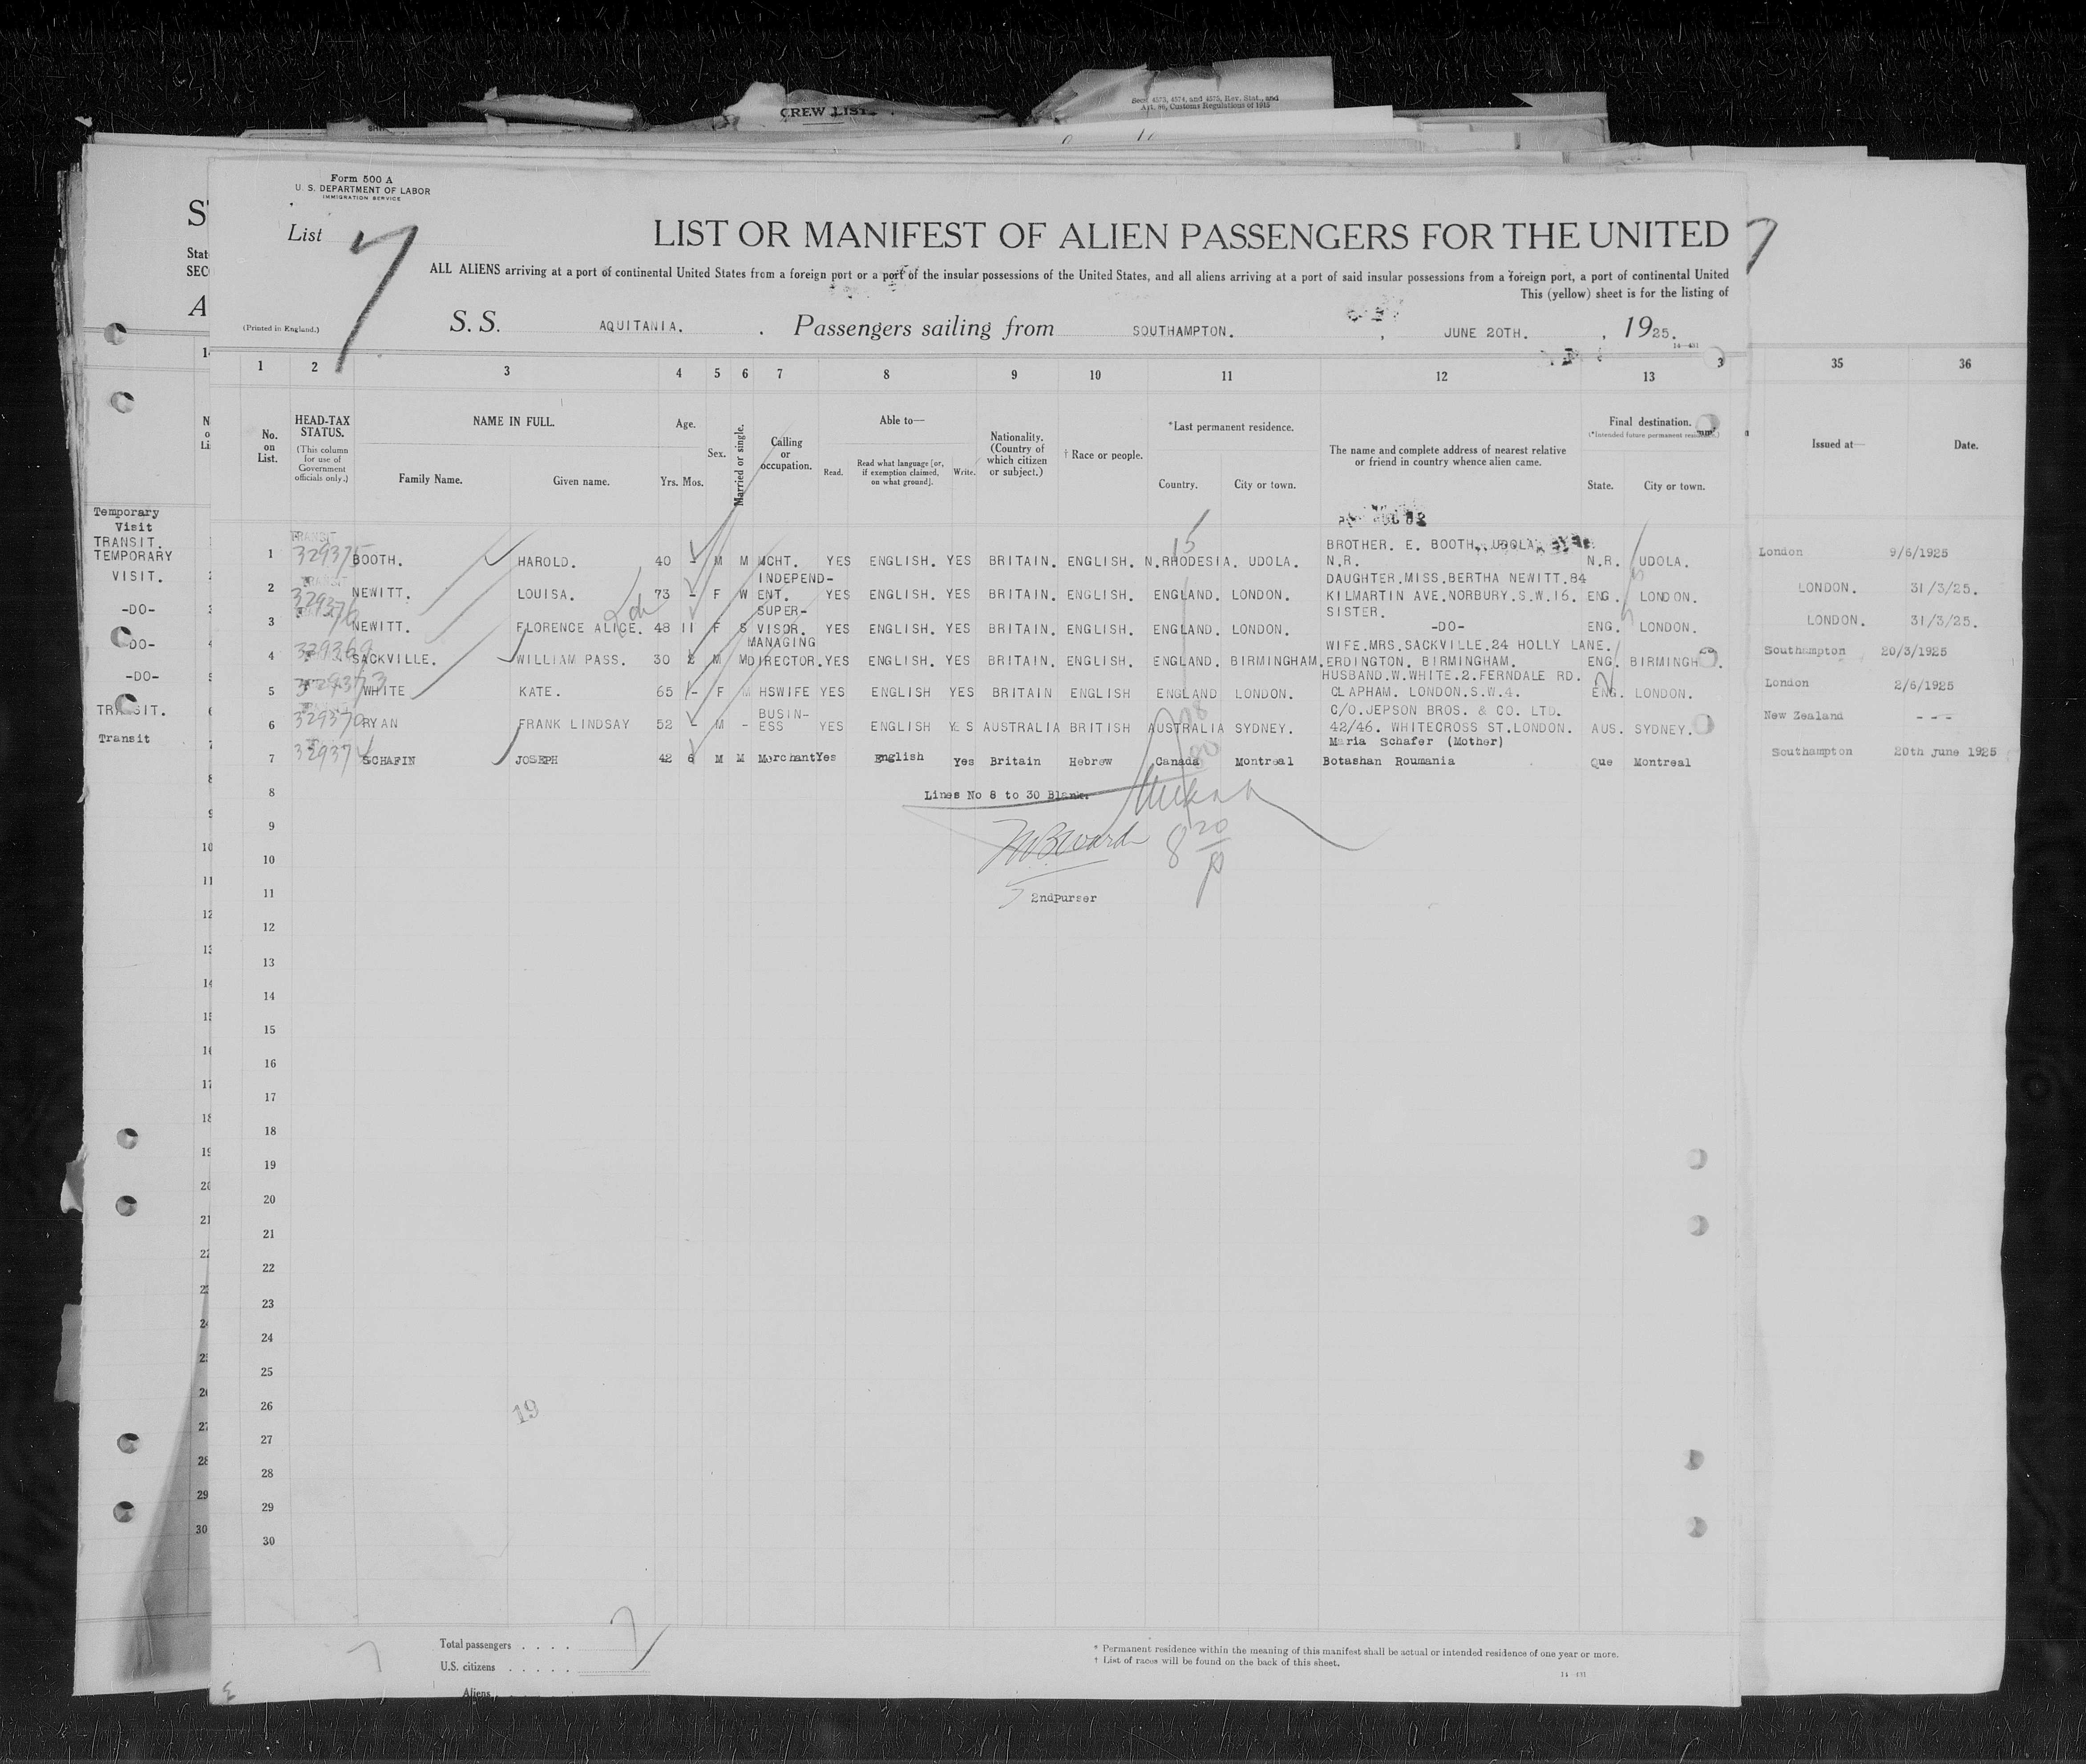 CREW LIST
Secs. 4573, 4574, and 4575, Rev. Stat., and
Art. 86, Customs Regulations of 1915
Form 500 A
U. S. DEPARTMENT OF LABOR
IMMIGRATION SERVICE
List 7
LIST OR MANIFEST OF ALIEN PASSENGERS FOR THE UNITED
7
ALL ALIENS arriving at a port of continental United States from a foreign port or a port of the insular possessions of the United States, and all aliens arriving at a port of said insular possessions from a foreign port, a port of continental United
This (yellow) sheet is for the listing of
(Printed in England.)
S. S. AQUITANIA. . Passengers sailing from SOUTHAMPTON. , JUNE 20TH. , 1925.
14—431
1 2 3 4 5 6 7 8 9 10 11 12 13 3 35 36
No. on List.
HEAD-TAX STATUS.
(This column for use of Government officials only.)
NAME IN FULL.
Family Name. Given name.
Age.
Yrs. Mos.
Sex.
Married or single.
Calling or occupation.
Able to—
Read. Read what language [or, if exemption claimed, on what ground]. Write.
Nationality. (Country of which citizen or subject.)
† Race or people.
*Last permanent residence.
Country. City or town.
The name and complete address of nearest relative or friend in country whence alien came.
Final destination.
(*Intended future permanent residence.)
State. City or town.
Issued at— Date.
Temporary
Visit
TRANSIT.
TEMPORARY
VISIT.
-DO-
-DO-
-DO-
TRANSIT.
Transit
TRANSIT
BROTHER. E. BOOTH. UDOLA
1 329375 BOOTH. HAROLD. 40 - M M MCHT. YES ENGLISH. YES BRITAIN. ENGLISH. N.RHODESIA. UDOLA. N.R. N.R. UDOLA. London 9/6/1925
15
INDEPEND- DAUGHTER.MISS.BERTHA NEWITT.84
2 NEWITT. LOUISA. 73 - F W ENT. YES ENGLISH. YES BRITAIN. ENGLISH. ENGLAND. LONDON. KILMARTIN AVE.NORBURY.S.W.16. ENG. LONDON. LONDON. 31/3/25.
SUPER- SISTER.
3 NEWITT. FLORENCE ALICE. 48 11 F S VISOR. YES ENGLISH. YES BRITAIN. ENGLISH. ENGLAND. LONDON. -DO- ENG. LONDON. LONDON. 31/3/25.
MANAGING WIFE.MRS.SACKVILLE.24 HOLLY LANE.
4 329369 SACKVILLE. WILLIAM PASS. 30 2 M M DIRECTOR. YES ENGLISH. YES BRITAIN. ENGLISH. ENGLAND. BIRMINGHAM. ERDINGTON. BIRMINGHAM. ENG. BIRMINGH . Southampton 20/3/1925
HUSBAND.W.WHITE.2.FERNDALE RD.
5 329373 WHITE KATE. 65 - F M HSWIFE YES ENGLISH YES BRITAIN ENGLISH ENGLAND LONDON. CLAPHAM. LONDON.S.W.4. ENG. LONDON. London 2/6/1925
BUSIN- C/O.JEPSON BROS. & CO. LTD.
6 329370 RYAN FRANK LINDSAY 52 - M - ESS YES ENGLISH YES AUSTRALIA BRITISH AUSTRALIA SYDNEY. 42/46. WHITECROSS ST.LONDON. AUS. SYDNEY. New Zealand - - -
Maria Schafer (Mother)
7 32937 SCHAFIN JOSEPH 42 6 M M Merchant Yes English Yes Britain Hebrew Canada Montreal Botashan Roumania Que Montreal Southampton 20th June 1925
8 Lines No 8 to 30 Blank.
9
10
11 2ndPurser
12
13
14
15
16
17
18
19
20
21
22
23
24
25
26
19
27
28
29
30
Total passengers . . . . 7
U.S. citizens . . . . .
Aliens
* Permanent residence within the meaning of this manifest shall be actual or intended residence of one year or more.
† List of races will be found on the back of this sheet.
14—431